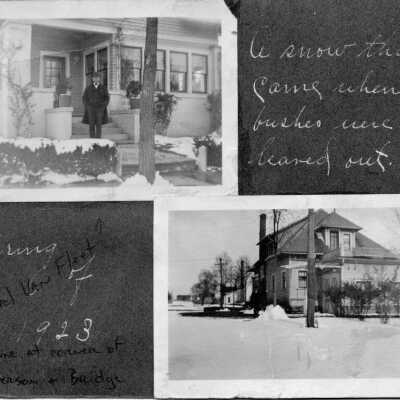 A snow tha
Came when
bushes were
leaved out.
ring
of
Van Fleet?
1923
me at corner of
erson & Bridge